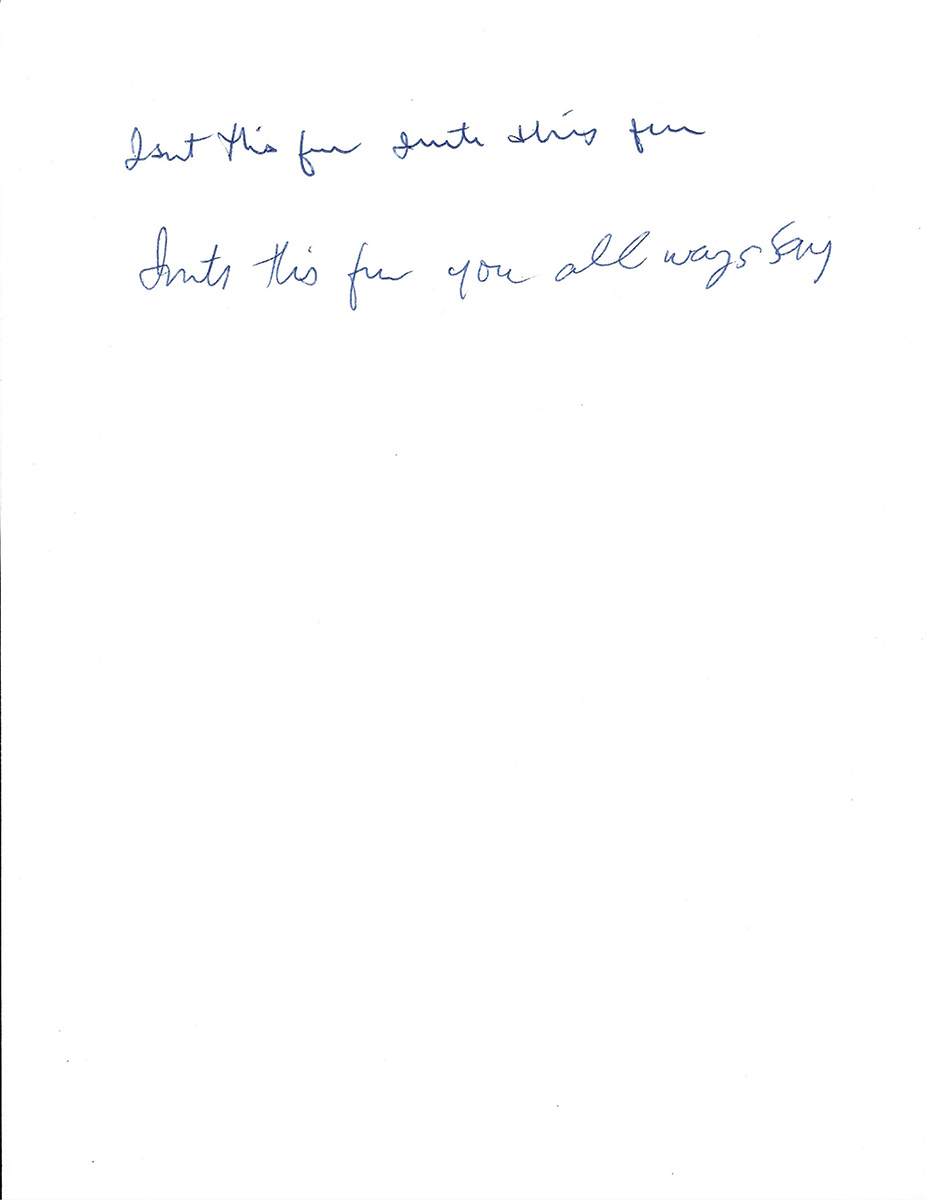 Isnt this fun Inite this fun
Ints this fun you all ways say